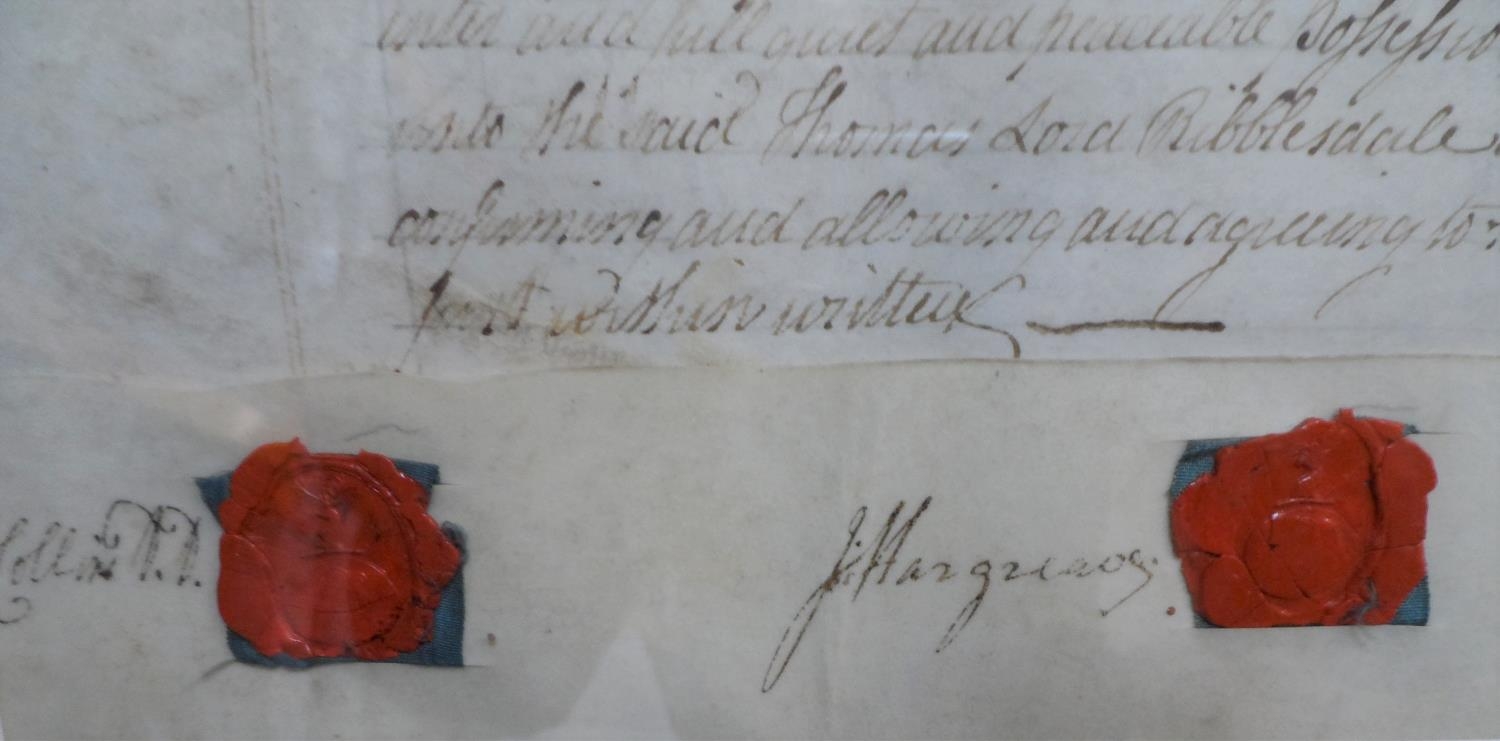 and full quiet and peaceable Possessio
unto the said Thomas Lord Ribblesdale
confirming and allowing and agreeing to
within written
J: Hargreaves